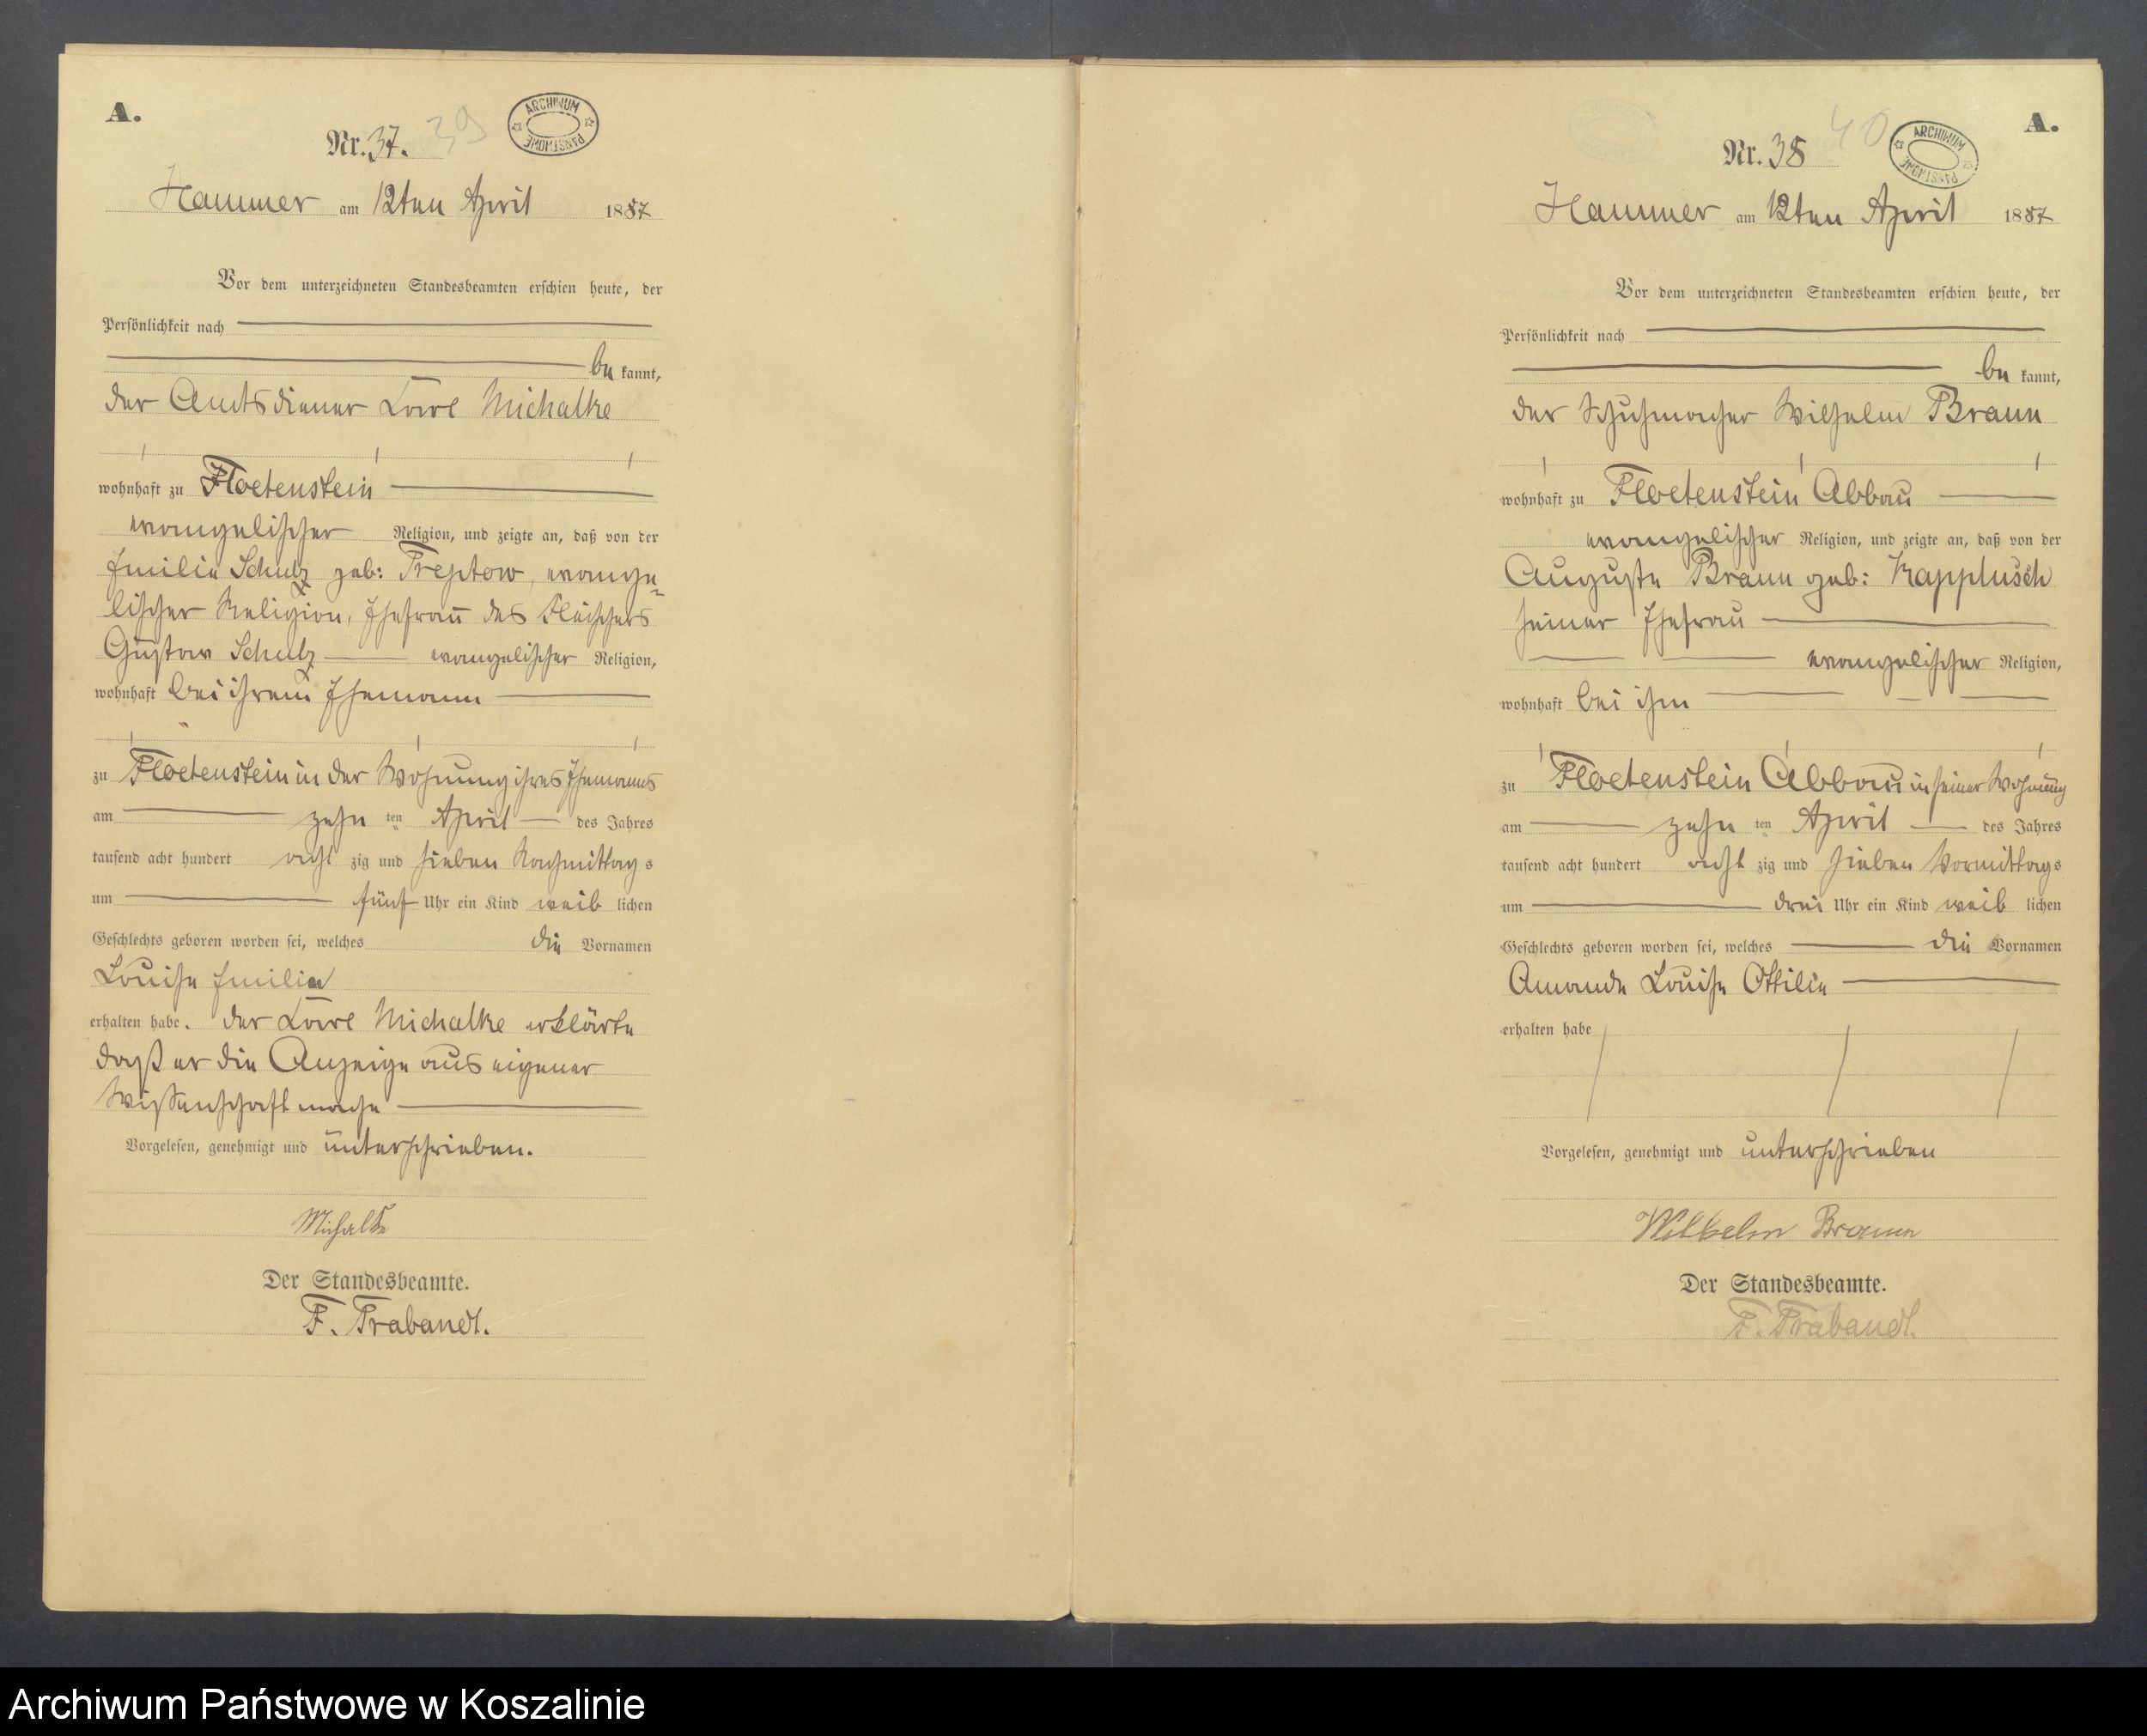 A.
Nr. 37. 39
ARCHIWUM PAŃSTWOWE
Hammer am 12ten April 1887
Vor dem unterzeichneten Standesbeamten erschien heute, der
Persönlichkeit nach
be kannt,
der Amtsdiener Carl Michalke
wohnhaft zu Floetenstein
evangelischer Religion, und zeigte an, daß von der
Emilie Schulz geb: Treptow, evange=
lischer Religion, Ehefrau des Fleischers
Gustav Schulz evangelischer Religion,
wohnhaft bei ihrem Ehemann
zu Floetenstein in der Wohnung ihres Ehemanns
am zehn ten April des Jahres
tausend acht hundert acht zig und sieben Nachmittag s
um fünf Uhr ein Kind weib lichen
Geschlechts geboren worden sei, welches die Vornamen
Louise Emilie
erhalten habe. Der Carl Michalke erklärte
daß er die Anzeige aus eigener
Wissenschaft mache
Vorgelesen, genehmigt und unterschrieben.
Michalke
Der Standesbeamte.
F. Trabandt.
A.
Nr. 38 40
ARCHIWUM PAŃSTWOWE
Hammer am 12ten April 1887
Vor dem unterzeichneten Standesbeamten erschien heute, der
Persönlichkeit nach
be kannt,
der Schuhmacher Wilhelm Braun
wohnhaft zu Floetenstein Abbau
evangelischer Religion, und zeigte an, daß von der
Auguste Braun geb: Kapplusch
seiner Ehefrau
evangelischer Religion,
wohnhaft bei ihm
zu Floetenstein Abbau in seiner Wohnung
am zehn ten April des Jahres
tausend acht hundert acht zig und sieben Vormittags
um drei Uhr ein Kind weib lichen
Geschlechts geboren worden sei, welches die Vornamen
Amande Louise Ottilie
erhalten habe
Vorgelesen, genehmigt und unterschrieben
Wilhelm Braun
Der Standesbeamte.
F. Trabandt.
Archiwum Państwowe w Koszalinie